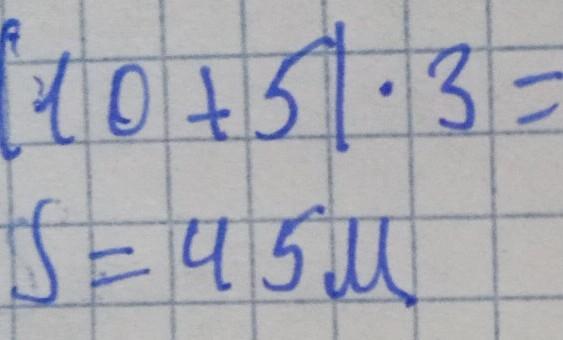 (10+5)·3=
S=45м.